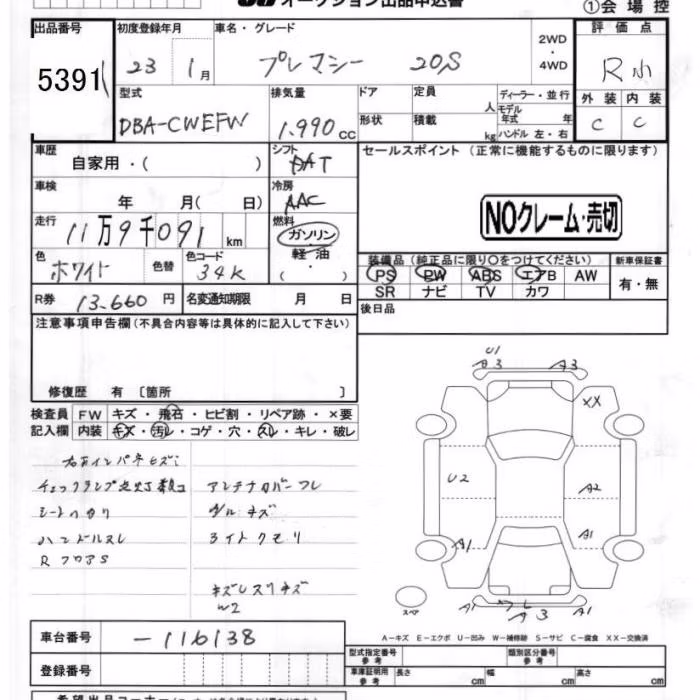 オークション出品申込書
①会場控
出品番号
5391
初度登録年月
23 1月
車名・グレード
プレマシー 20S
2WD・4WD
評価点
R小
外装 内装
C C
型式
DBA-CWEFW
排気量
1.990 cc
ドア
形状
定員 人
積載 kg
ディーラー・並行
モデル年式 年
ハンドル 左・右
車歴
自家用・( )
シフト
AT
セールスポイント (正常に機能するものに限ります)
車検
年 月( 日)
冷房
AAC
NOクレーム・売切
走行
11万9千091 km
燃料
ガソリン・軽油・( )
色
ホワイト
色替
色コード
34K
装備品(純正品に限り○をつけてください)
PS PW ABS エアB AW
SR ナビ TV カワ
新車保証書
有・無
R券
13.660 円
名変通知期限 月 日
後日品
注意事項申告欄(不具合内容等は具体的に記入して下さい)
修復歴 有〔箇所 〕
検査員記入欄
FW キズ・飛石・ヒビ割・リペア跡・×要
内装 キズ・汚レ・コゲ・穴・スレ・キレ・破レ
チェックランプ点灯
アンテナカバー
シートヘタリ
ハンドルスレ
ライトクモリ
R フロアS
W2
U1
A3 A3
XX
U2
A2
A1 A1
スペア
A1 A3 A1
A-キズ E-エクボ U-凹み W-補修跡 S-サビ C-腐食 XX-交換済
車台番号
-116138
登録番号
型式指定番号 参考
類別区分番号 参考
車庫証明用 参考
長さ cm 幅 cm 高さ cm